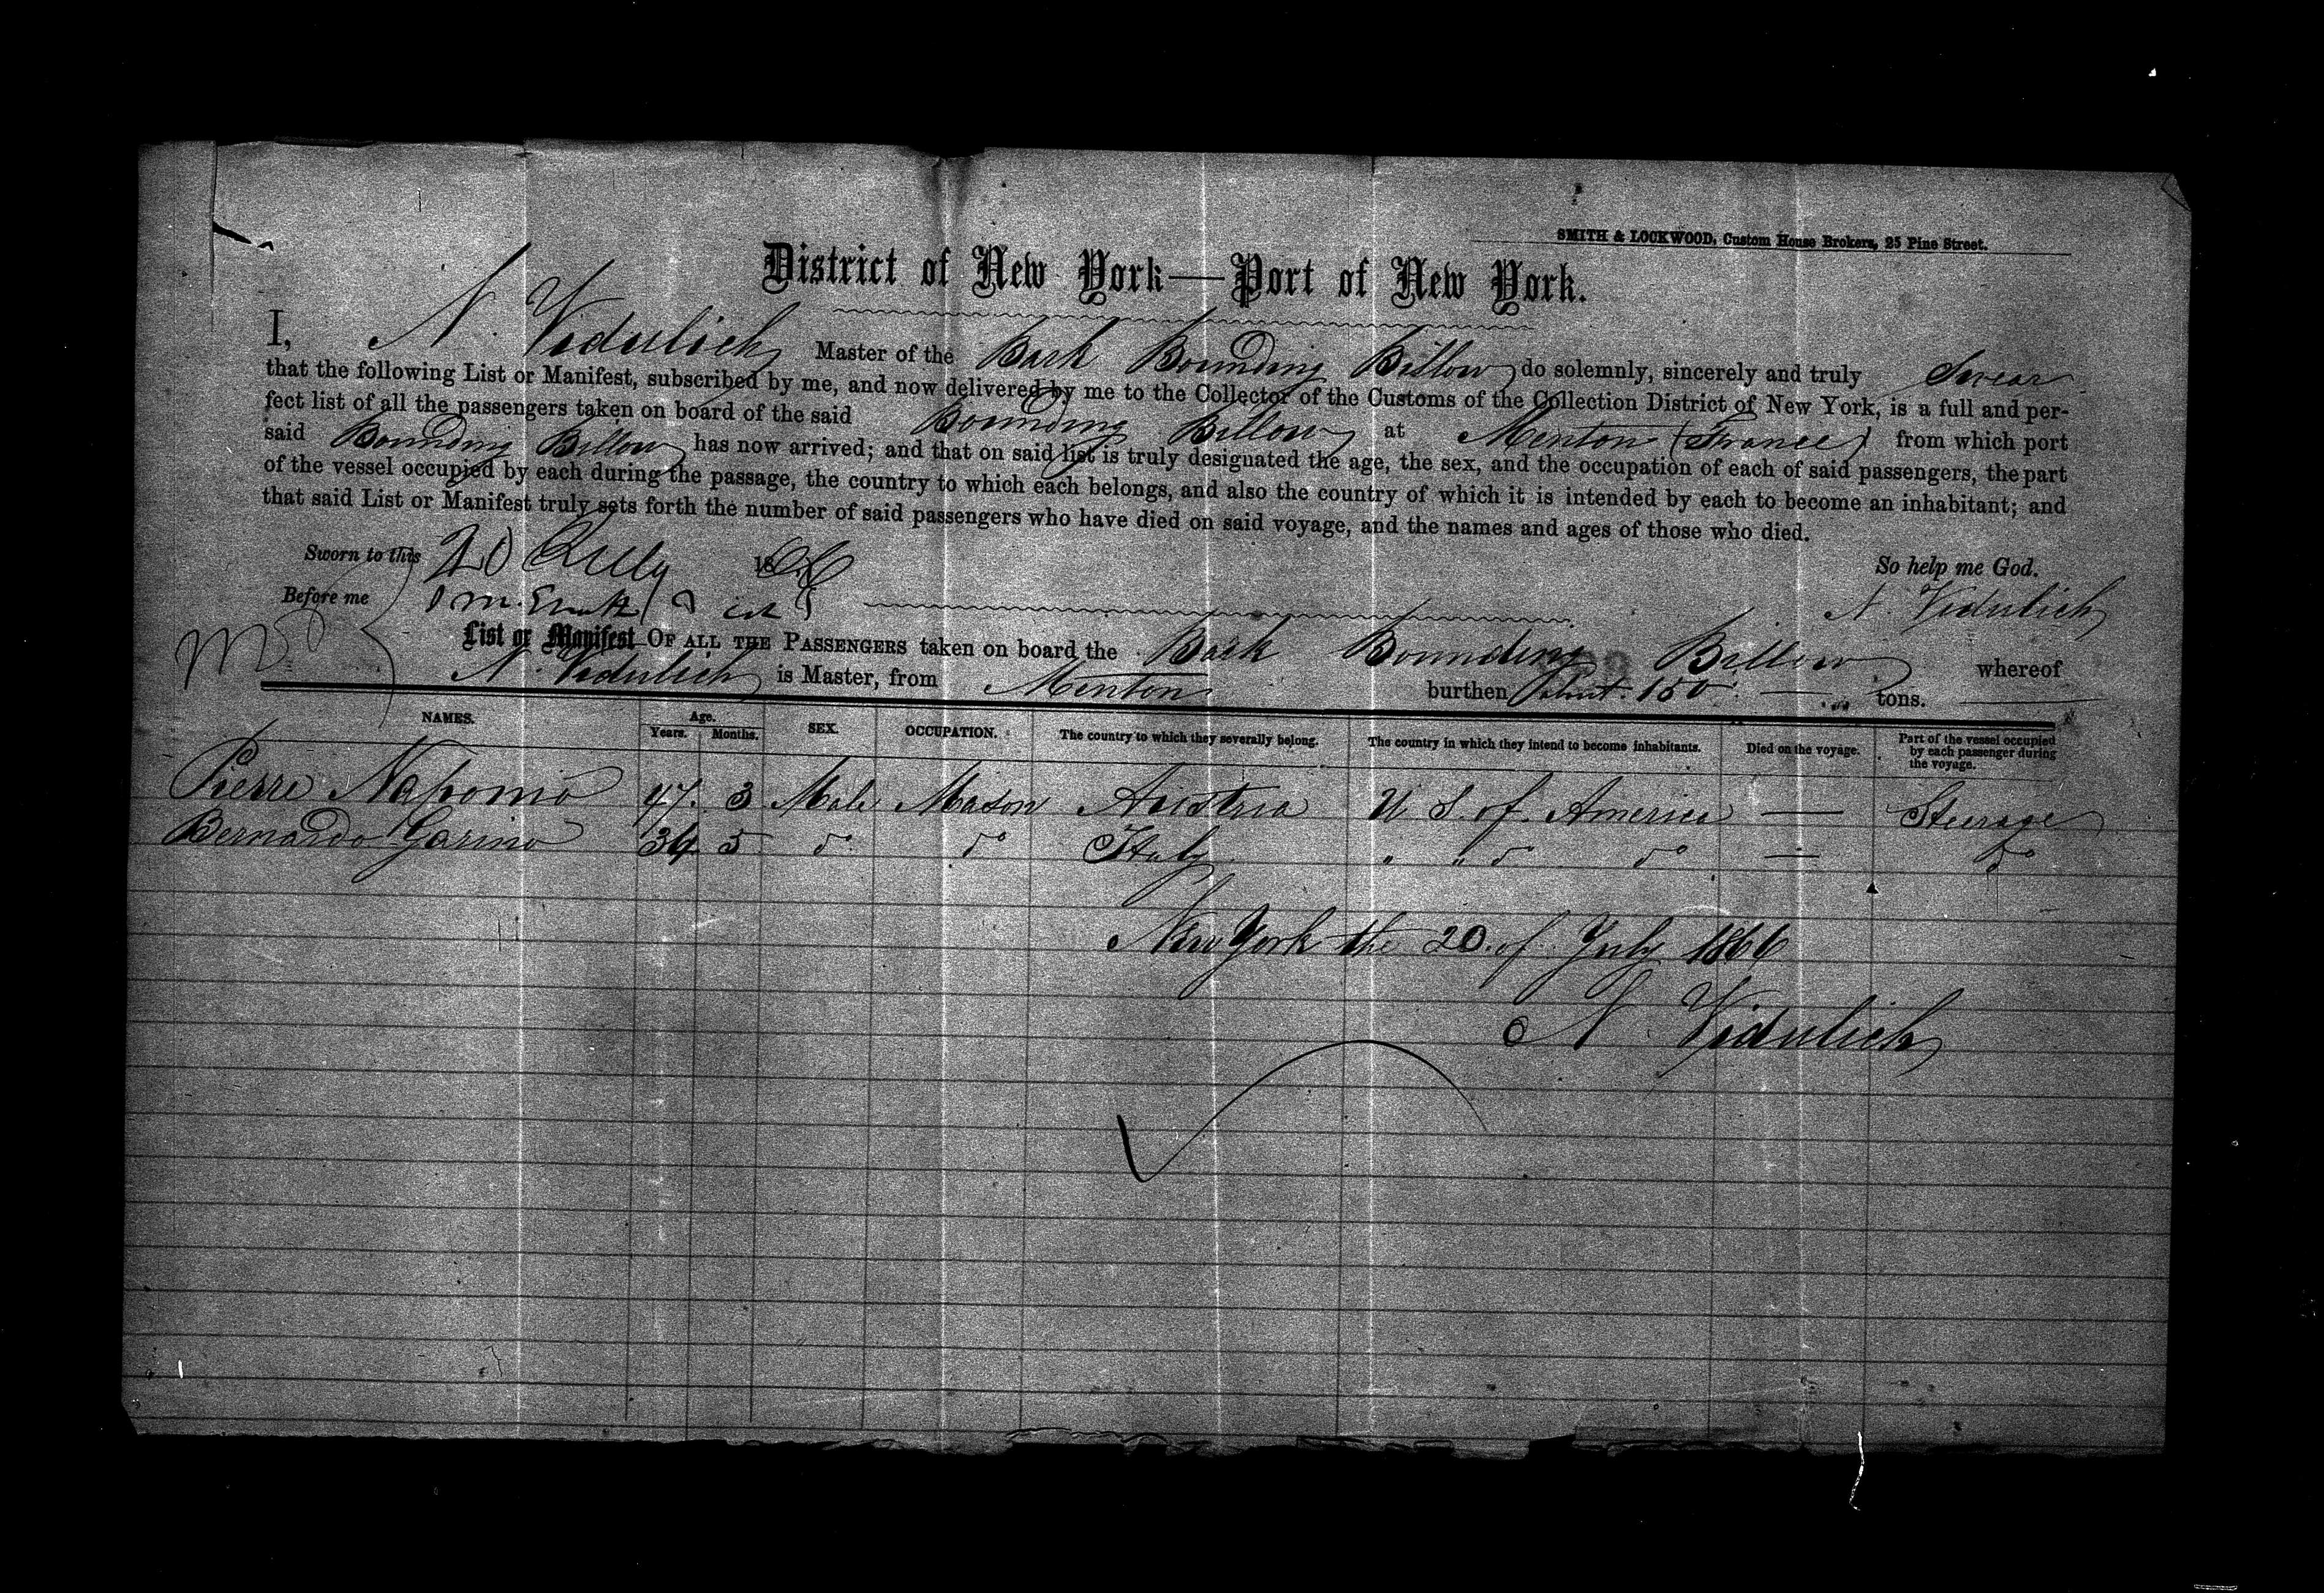 SMITH & LOCKWOOD, Custom House Brokers, 25 Pine Street.
District of New York—Port of New York.
I, N. Vidulich Master of the Bark Bounding Billow do solemnly, sincerely and truly Swear
that the following List or Manifest, subscribed by me, and now delivered by me to the Collector of the Customs of the Collection District of New York, is a full and per-
fect list of all the passengers taken on board of the said Bounding Billow at Menton (France) from which port
said Bounding Billow has now arrived; and that on said list is truly designated the age, the sex, and the occupation of each of said passengers, the part
of the vessel occupied by each during the passage, the country to which each belongs, and also the country of which it is intended by each to become an inhabitant; and
that said List or Manifest truly sets forth the number of said passengers who have died on said voyage, and the names and ages of those who died.
Sworn to this 20 July 1866 So help me God.
Before me N. Vidulich
List or Manifest OF ALL THE PASSENGERS taken on board the Bark Bounding Billow whereof
N. Vidulich is Master, from Menton burthen 150 tons.
NAMES. Age. Years. Months. SEX. OCCUPATION. The country to which they severally belong. The country in which they intend to become inhabitants. Died on the voyage. Part of the vessel occupied by each passenger during the voyage.
Pierre 47. 3 Male Mason Austria U S. of America — Steerage
Bernardo Garino 34 5 do do Italy " " do do — do
New York the 20. of July 1866
N Vidulich